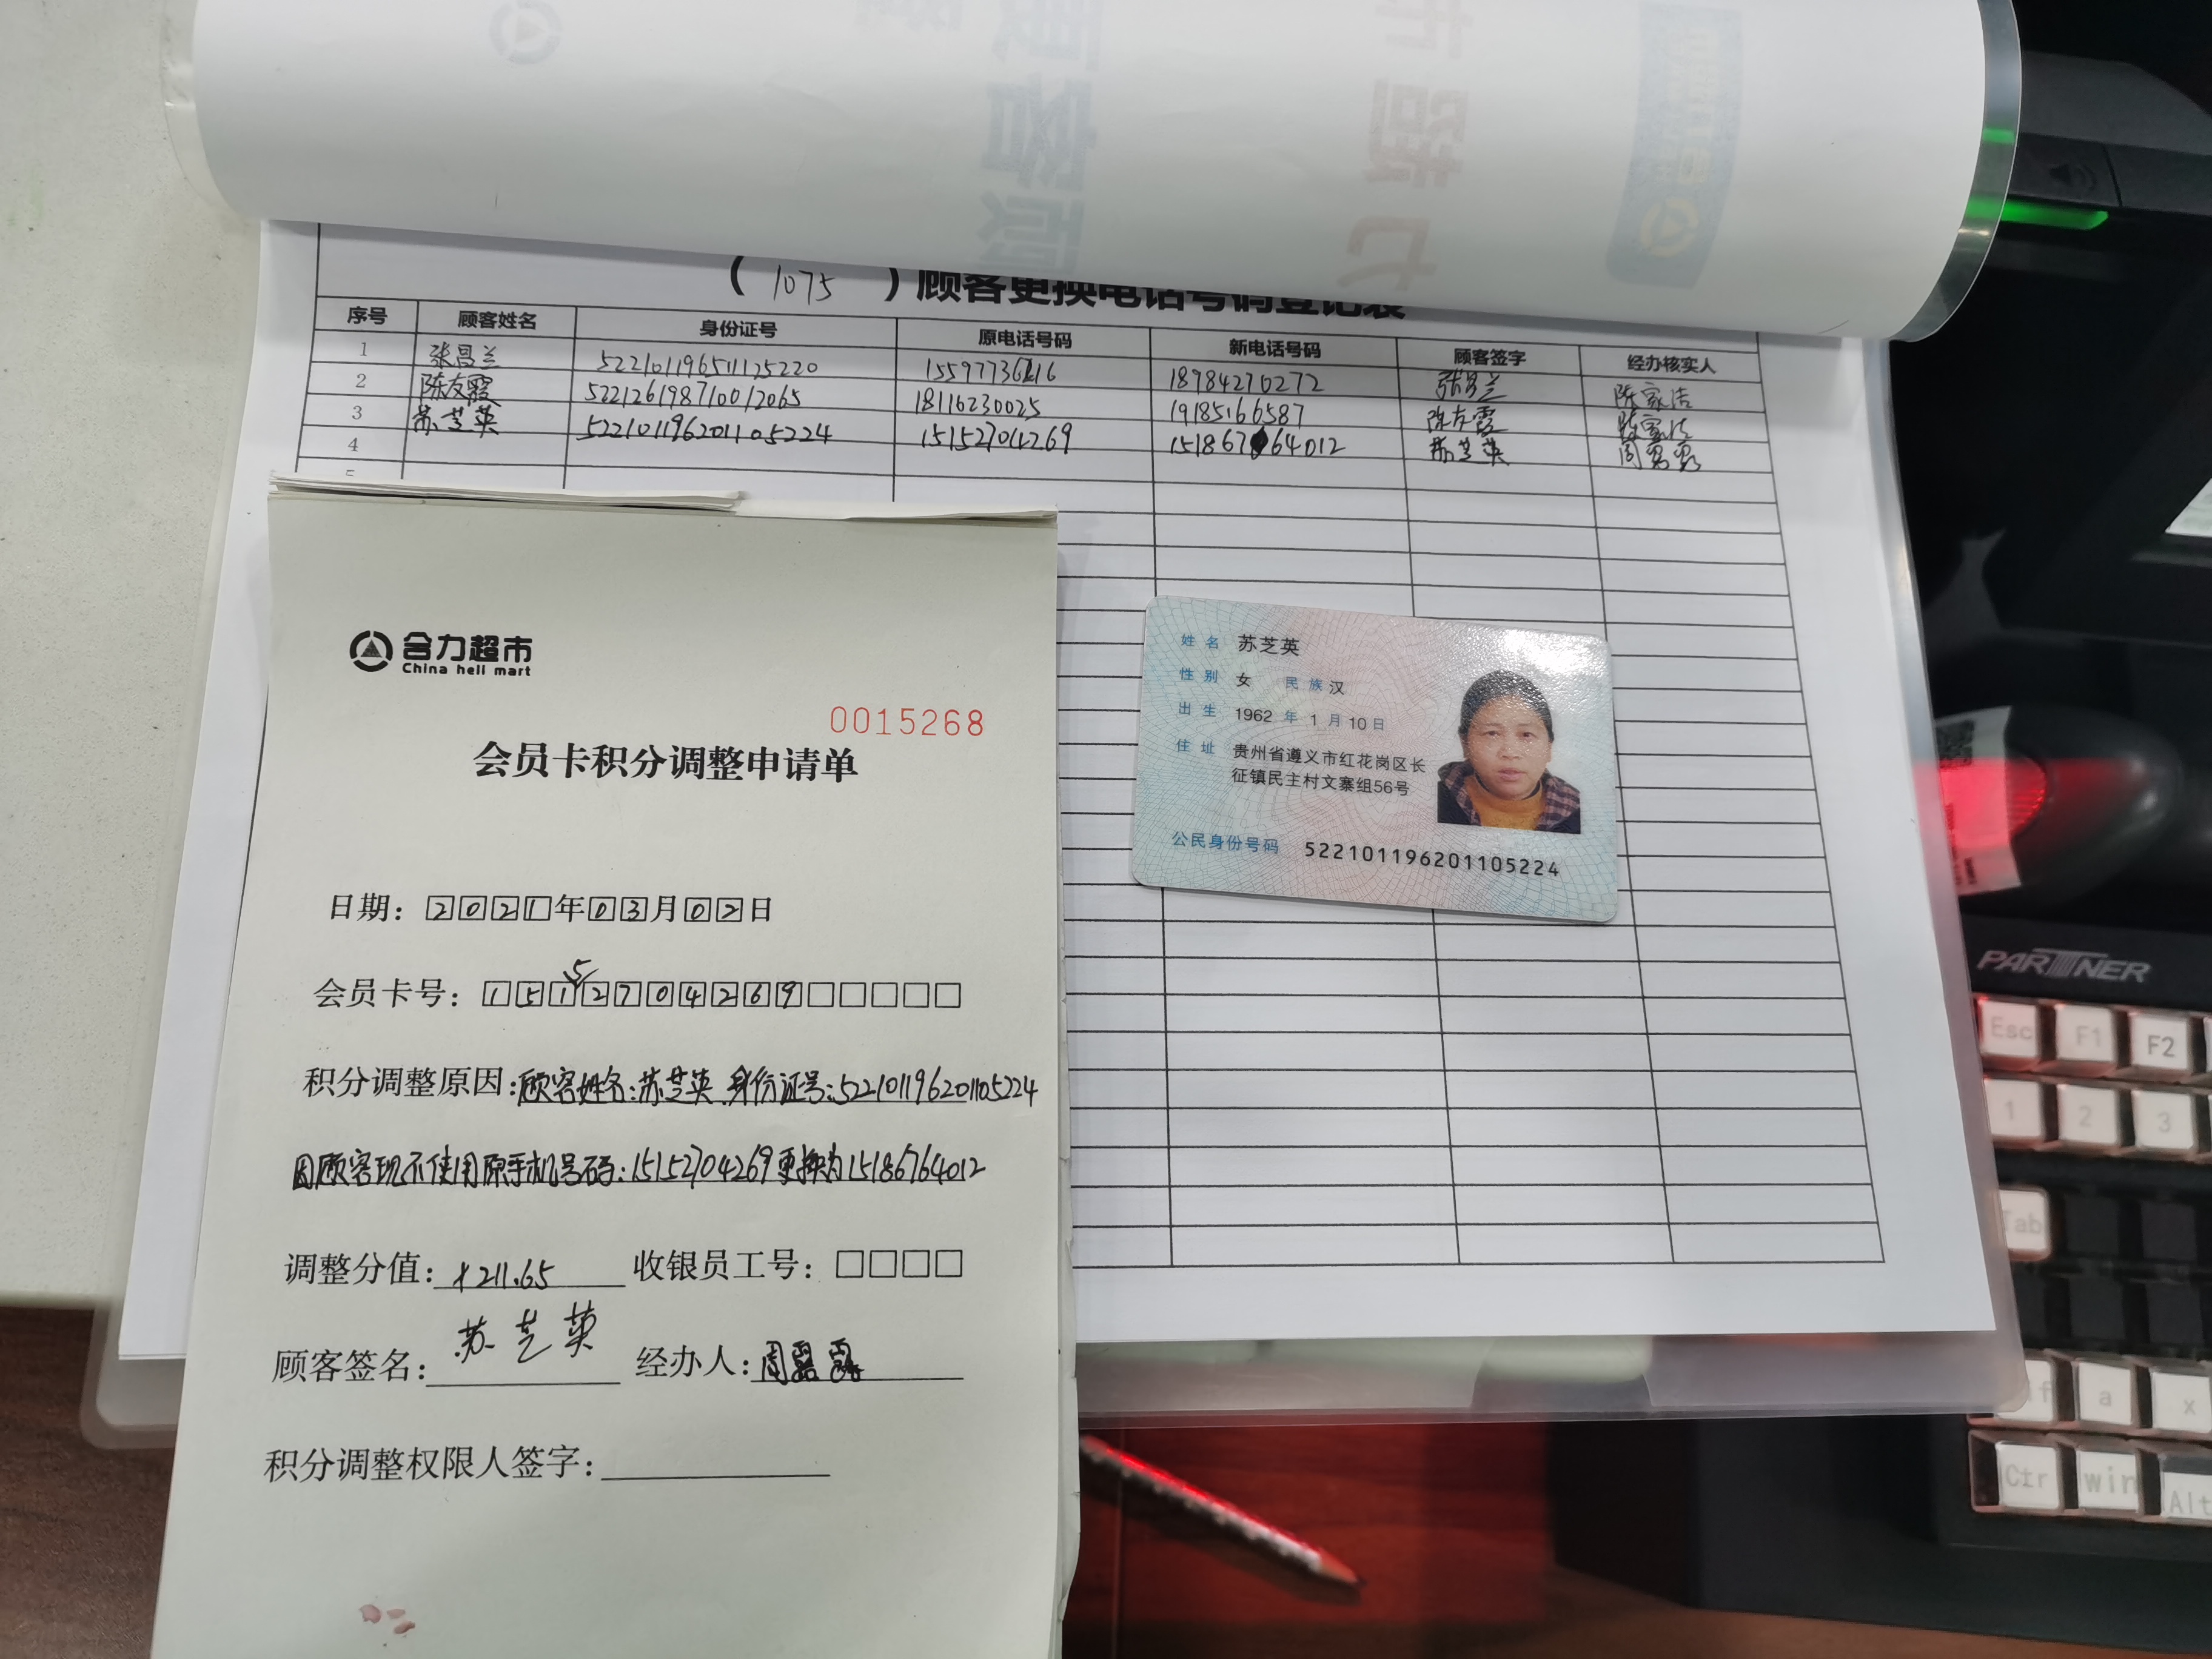 （ 1075 ）顾客更换电话号码登记表
序号 顾客姓名 身份证号 原电话号码 新电话号码 顾客签字 经办核实人
1 张昌兰 522101196511125220 15597736216 18984270272 张昌兰 陈家洁
2 陈友霞 522126198710012065 18116230025 19185166587 陈友霞 陈家洁
3 苏芝英 522101196201105224 15152704269 15186764012 苏芝英 周露露
4
5
合力超市
China heli mart
0015268
会员卡积分调整申请单
日期：2021年03月02日
会员卡号：15152704269
积分调整原因：顾客姓名：苏芝英 身份证号：522101196201105224
因顾客现不使用原手机号码：15152704269更换为15186764012
调整分值：+211.65 收银员工号：
顾客签名：苏芝英 经办人：周露露
积分调整权限人签字：
姓名 苏芝英
性别 女 民族 汉
出生 1962 年 1 月 10 日
住址 贵州省遵义市红花岗区长
征镇民主村文寨组56号
公民身份号码 522101196201105224
PARTNER
Esc F1 F2
1 2 3
Tab
a x
Ctr win Alt